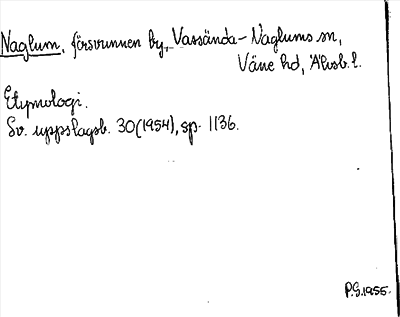 Naglum, försvunnen by, Vassända-Naglums sn,
Väne hd, Älvsb. l.
Etymologi.
Sv. uppslagsb. 30(1954), sp. 1136.
P.G.1955.